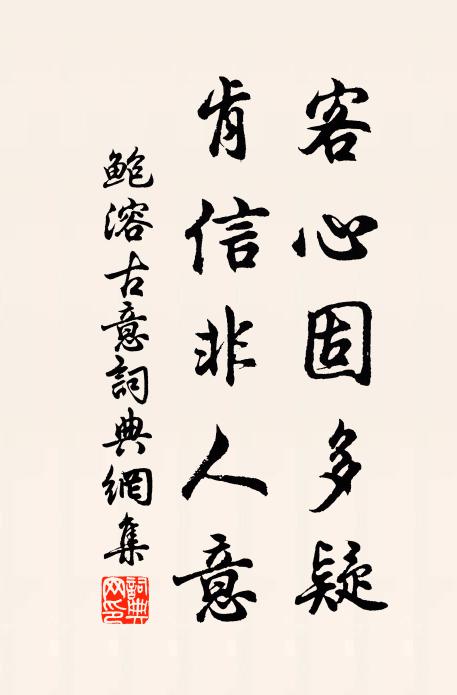 客心固多疑
肯信非人意
鲍溶古意詞典網集
詞典网印